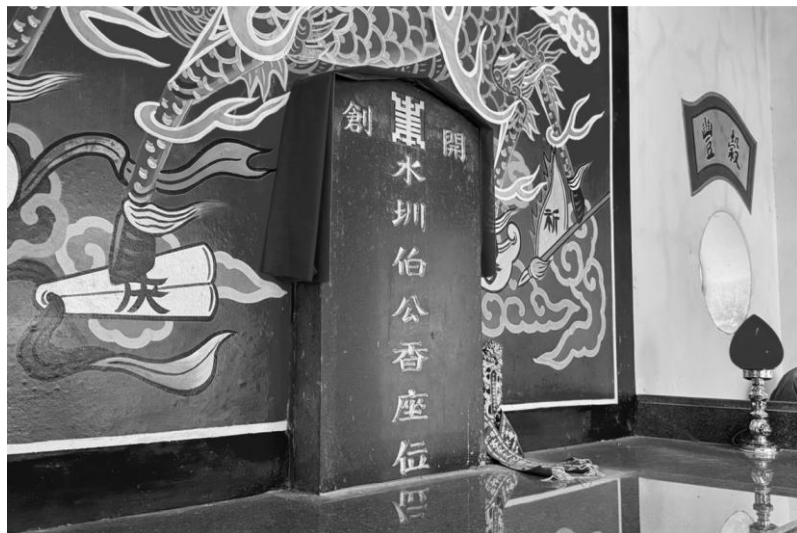 開創
水圳伯公香座位
祈
穀豐